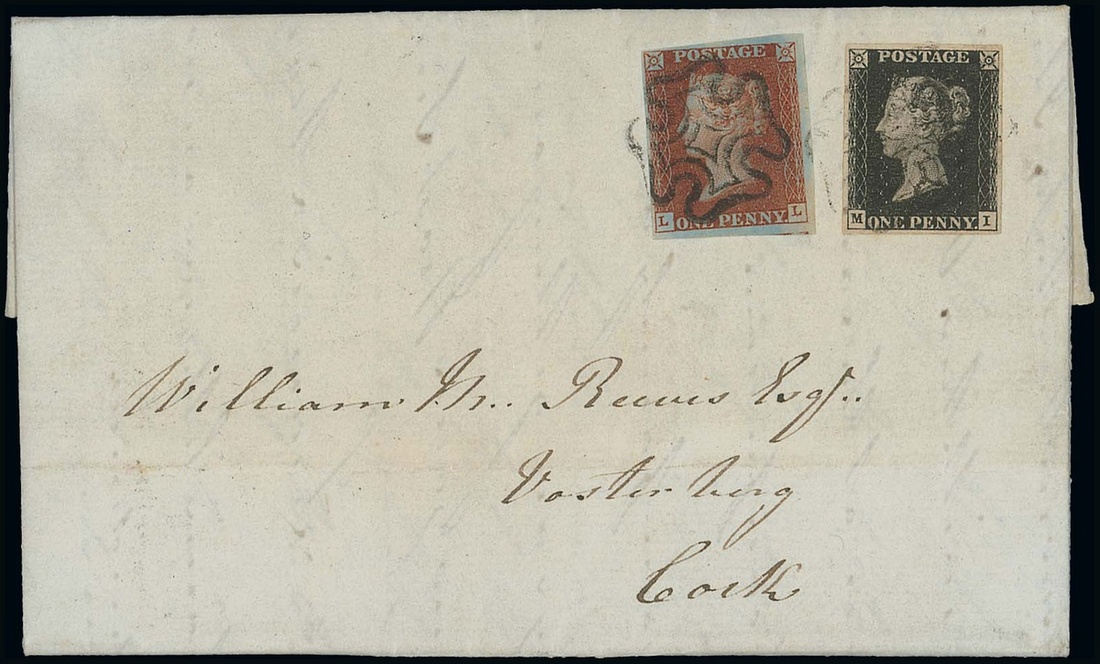 POSTAGE
L ONE PENNY. L
POSTAGE
M ONE PENNY. I
William M. Reeves Esqr.
Vosterberg
Cork